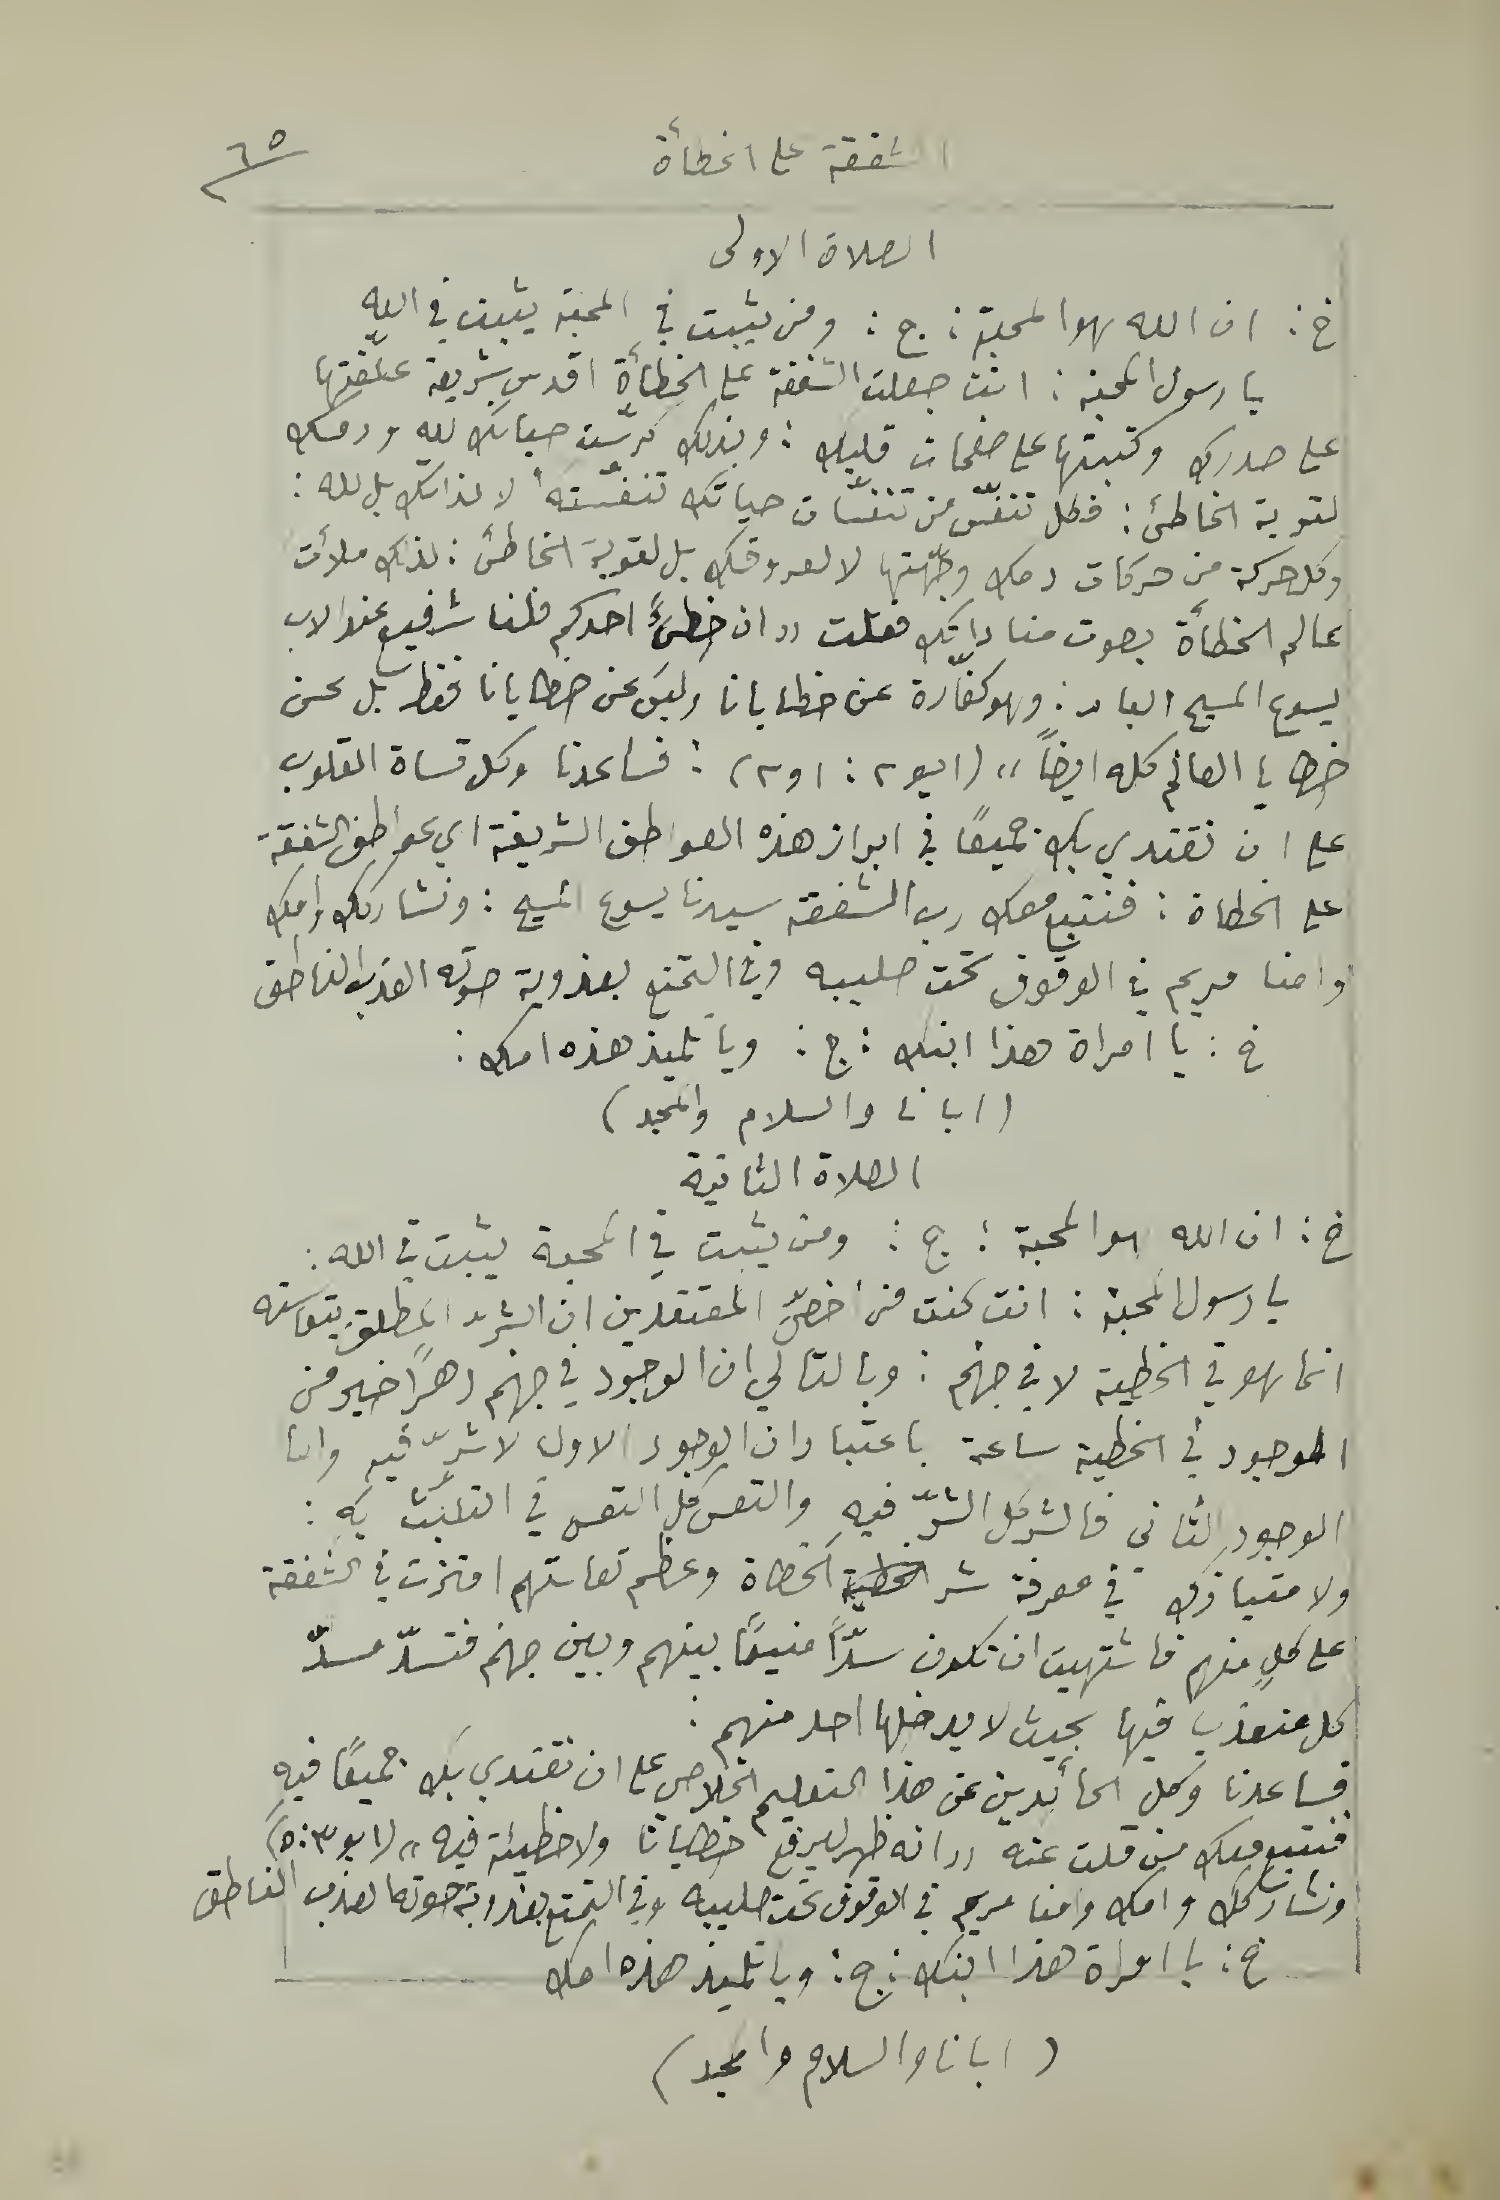 الشفقة على الخطأة
٦٥
الصلاة الاولى
خ : ان الله هو المحبة : ج : ومن يثبت في المحبة يثبت في الله
يا رسول المحبة : انت جعلت الشفقة على الخطأة اقدس شريعة علّقتها
على صدرك وكتبتها على صفحات قلبك : وبذلك كرّست حياتك لله ودمك
لتوبة الخاطئ : فكل تنفّس من تنفّسات حياتك تنفّسته لا لذاتك بل لله :
وكل حركة من حركات دمك وجّهتها لا لعروقك بل لتوبة الخاطئ : لذلك ملأت
عالم الخطأة بصوت مناداتك فقلت « ان خطئ احدكم فلنا شفيع عند الاب
يسوع المسيح البار : وهو كفّارة عن خطايانا وليس عن خطايانا فقط بل عن
خطايا العالم كله ايضاً » (١يو ٢ : ١و٢) : فساعدنا وكل قساة القلوب
على ان نقتدي بك جميعًا في ابراز هذه العواطف الشريفة اي عواطف الشفقة
على الخطاة : فنتبع معك رب الشفقة سيدنا يسوع المسيح : ونشاركك وامك
وامنا مريم في الوقوف تحت صليبه وفي التمتع بعذوبة صوته العذب الناطق
خ : يا امراة هذا ابنك : ج : ويا تلميذ هذه امك :
(ابانا والسلام والمجد)
الصلاة الثانية
خ : ان الله هو المحبة : ج : ومن يثبت في المحبة يثبت في الله :
يا رسول المحبة : انت كنت من اخصّ المعتقدين ان الشر المطلق بتعاسته
انما هو في الخطية لا في جهنم : وبالتالي ان الوجود في جهنم دهرًا خير من
الوجود في الخطية ساعة باعتبار ان الوجود الاول لا شرّ فيه واما
الوجود الثاني فالشر كل الشرّ فيه والتعس كل التعس في التلبّث به :
ولامتيازك في معرفة شر الخطية الخطاة وعظم تعاستهم امتزت في الشفقة
على كلٍ منهم فاشتهيت ان تكون سدًّا منيعًا بينهم وبين جهنم فتسدّ مسدّ
كل معذب فيها بحيث لا يدخلها احد منهم :
فساعدنا وكل الحائدين عن هذا التعليم الخلاصي على ان نقتدي بك جميعًا فيه
فنتبع معك من قلت عنه « انه ظهر ليرفع خطايانا ولا خطيئة فيه » (١يو ٣ : ٥)
ونشاركك وامك وامنا مريم في الوقوف تحت صليبه وفي التمتع بعذوبة صوته العذب الناطق
خ : يا امراة هذا ابنك : ج : ويا تلميذ هذه امك
(ابانا والسلام والمجد)